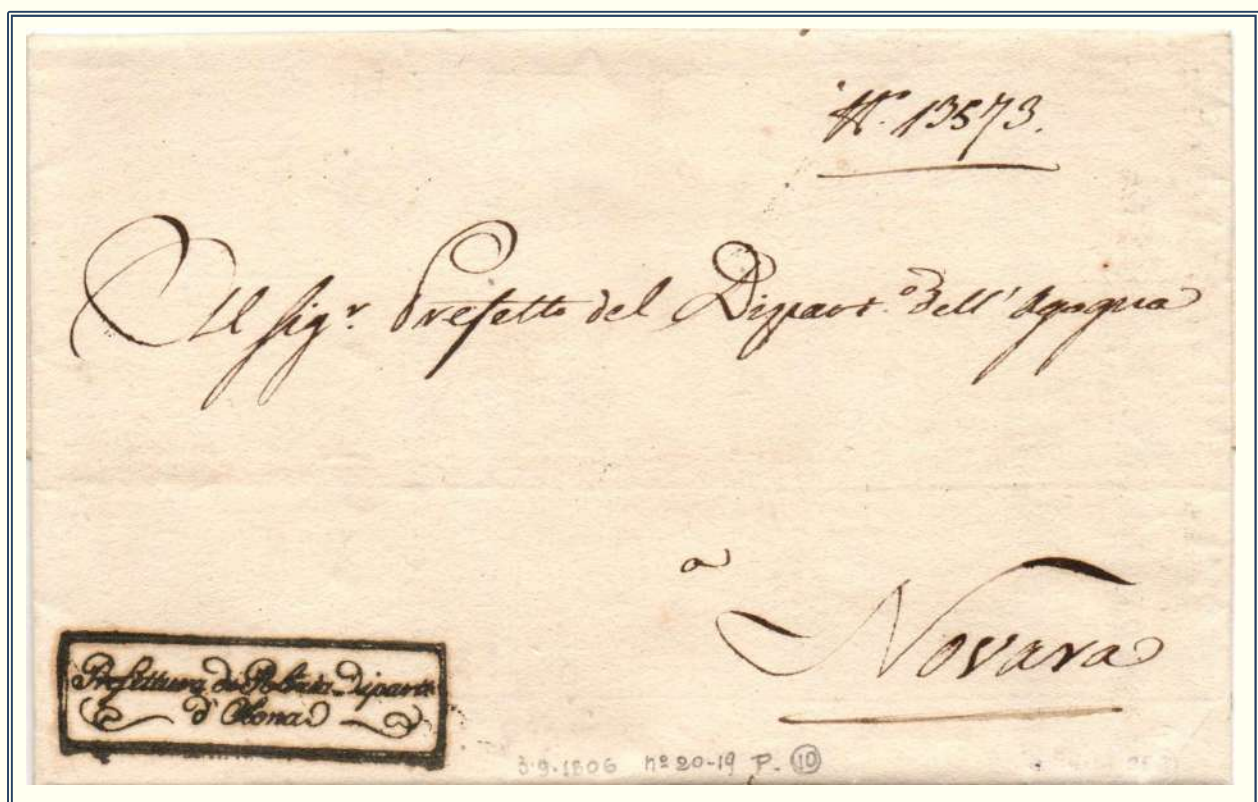 N.° 13573.
Al Sig.r Prefetto del Dipart.o dell'Agogna
a
Novara
Prefettura di Polizia Dipart.
d'Olona
3.9.1806 nº 20-19 P. 10